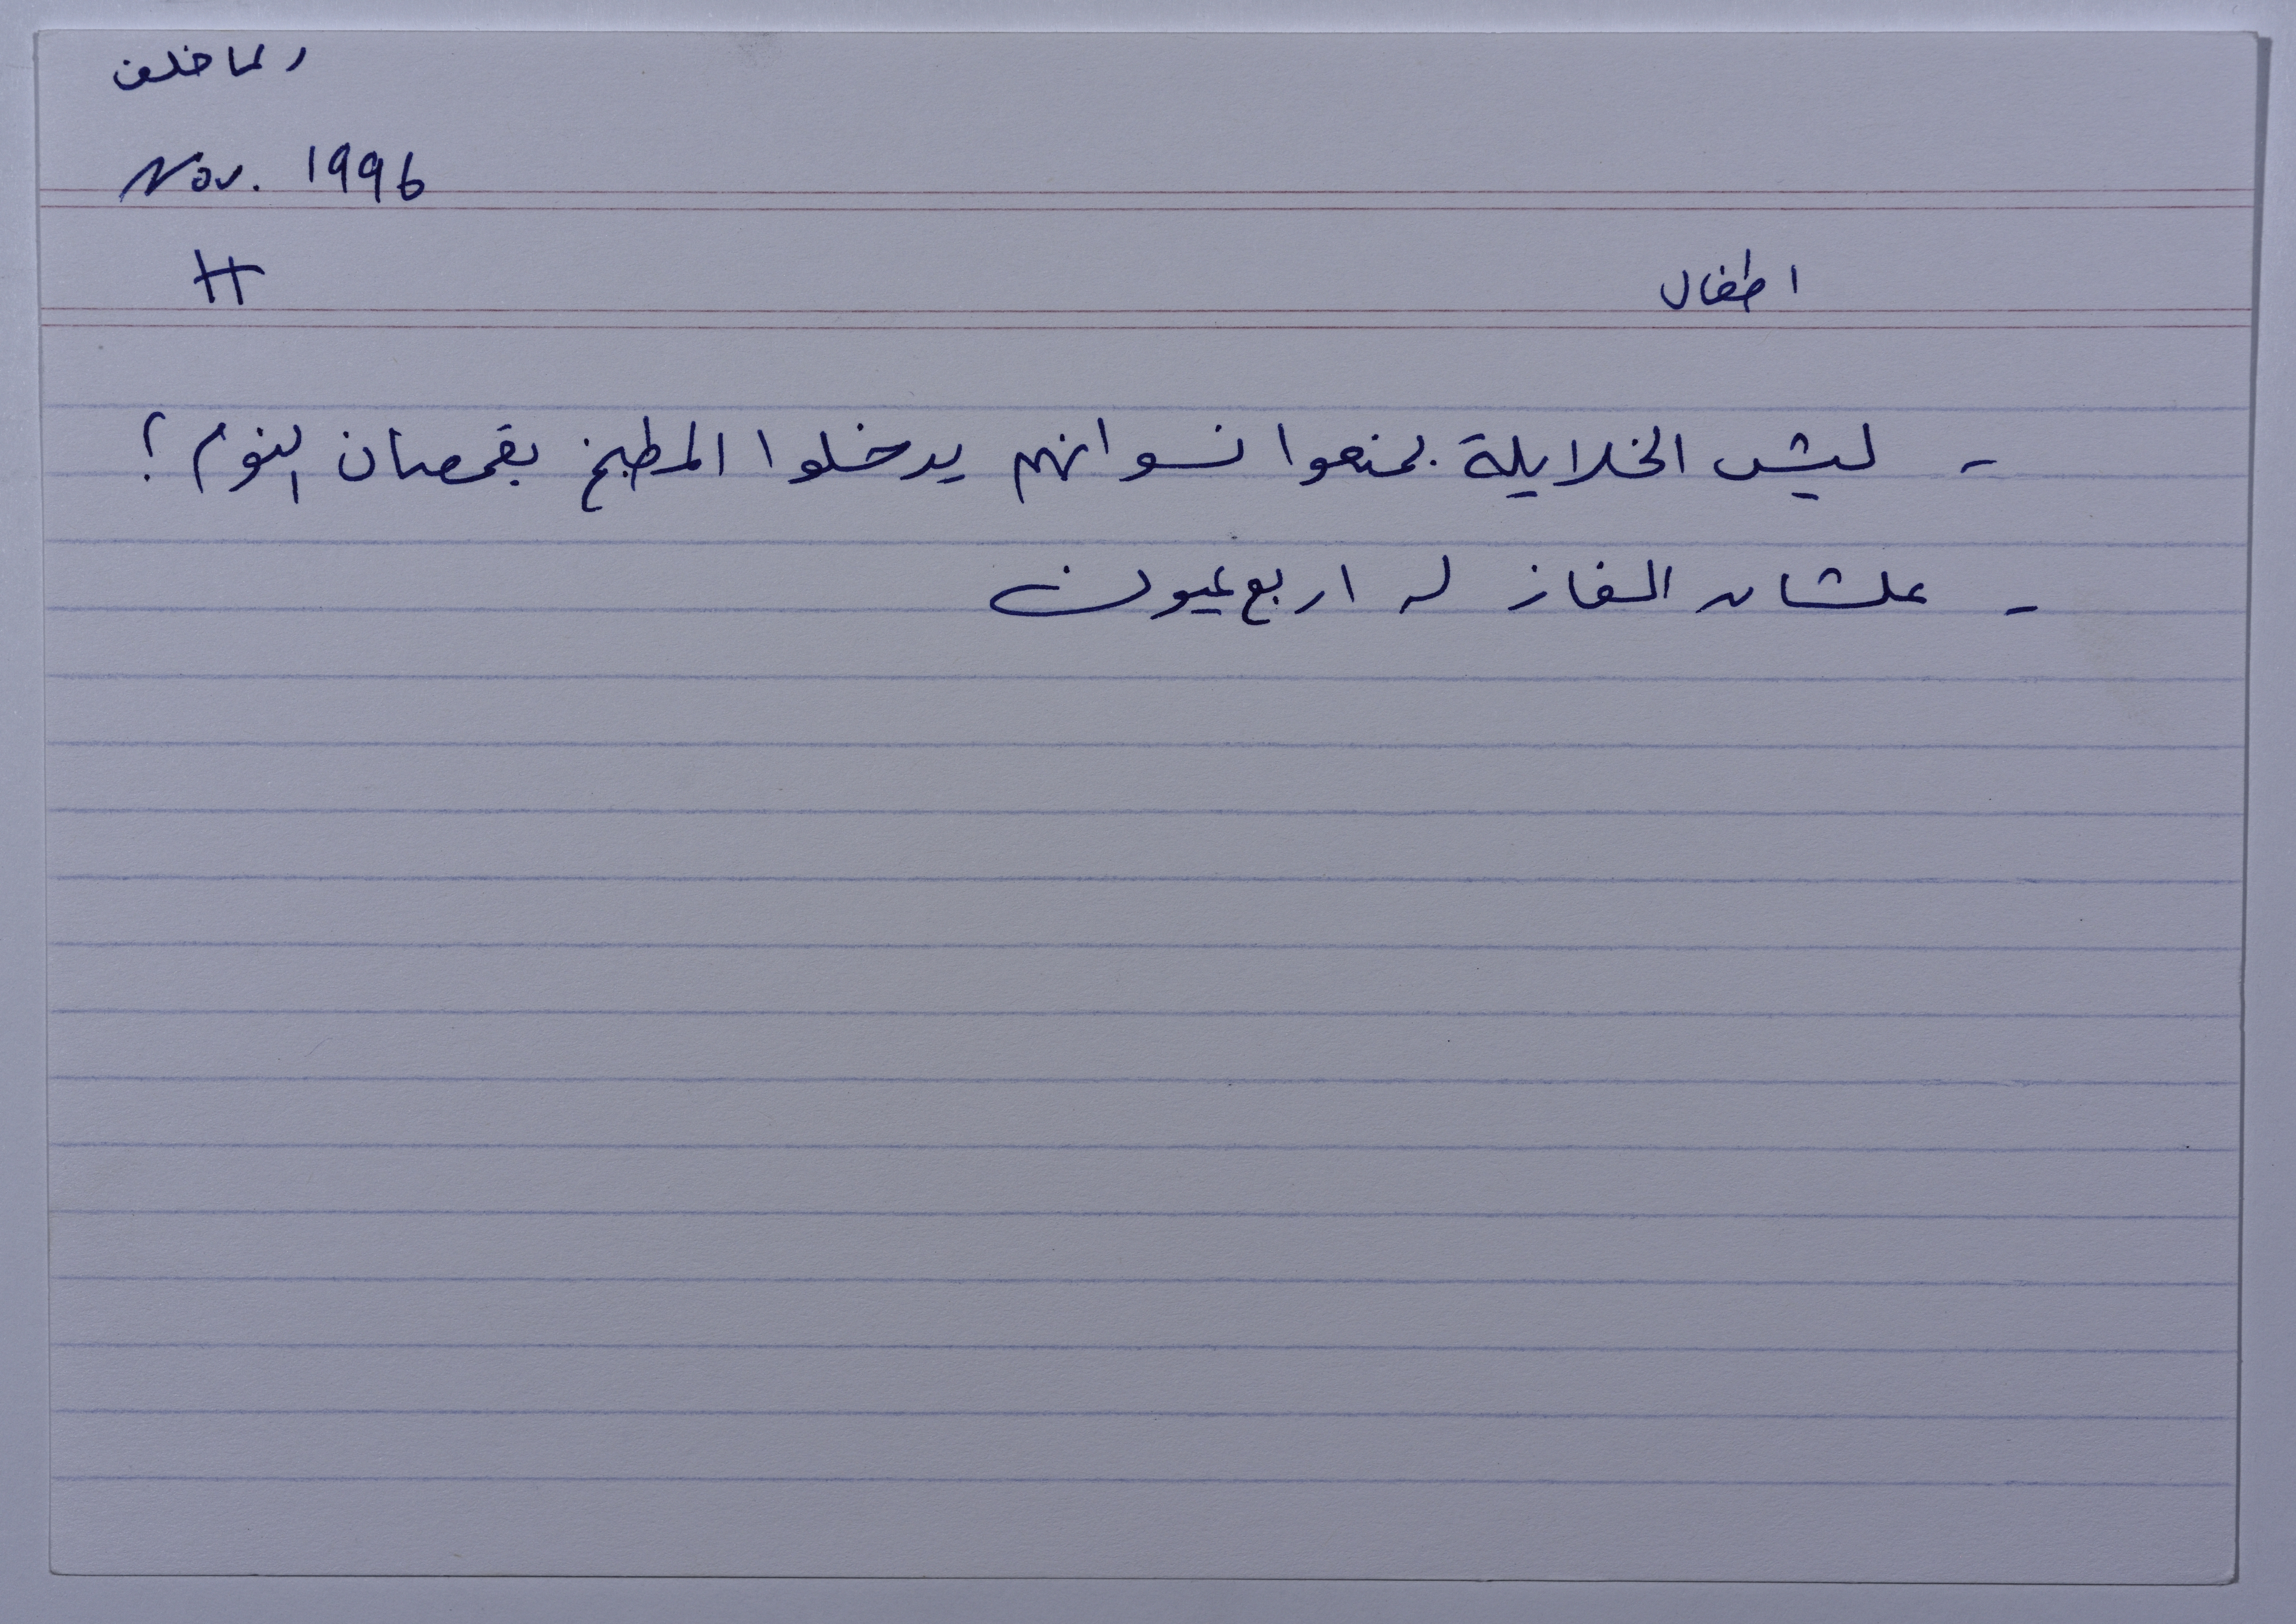 رلما خلف
Nov. 1996
H
اطفال
- ليش الخلايلة بمنعوا نسوانهم يدخلوا المطبخ بقمصان النوم؟
- علشان الغاز له اربع عيون